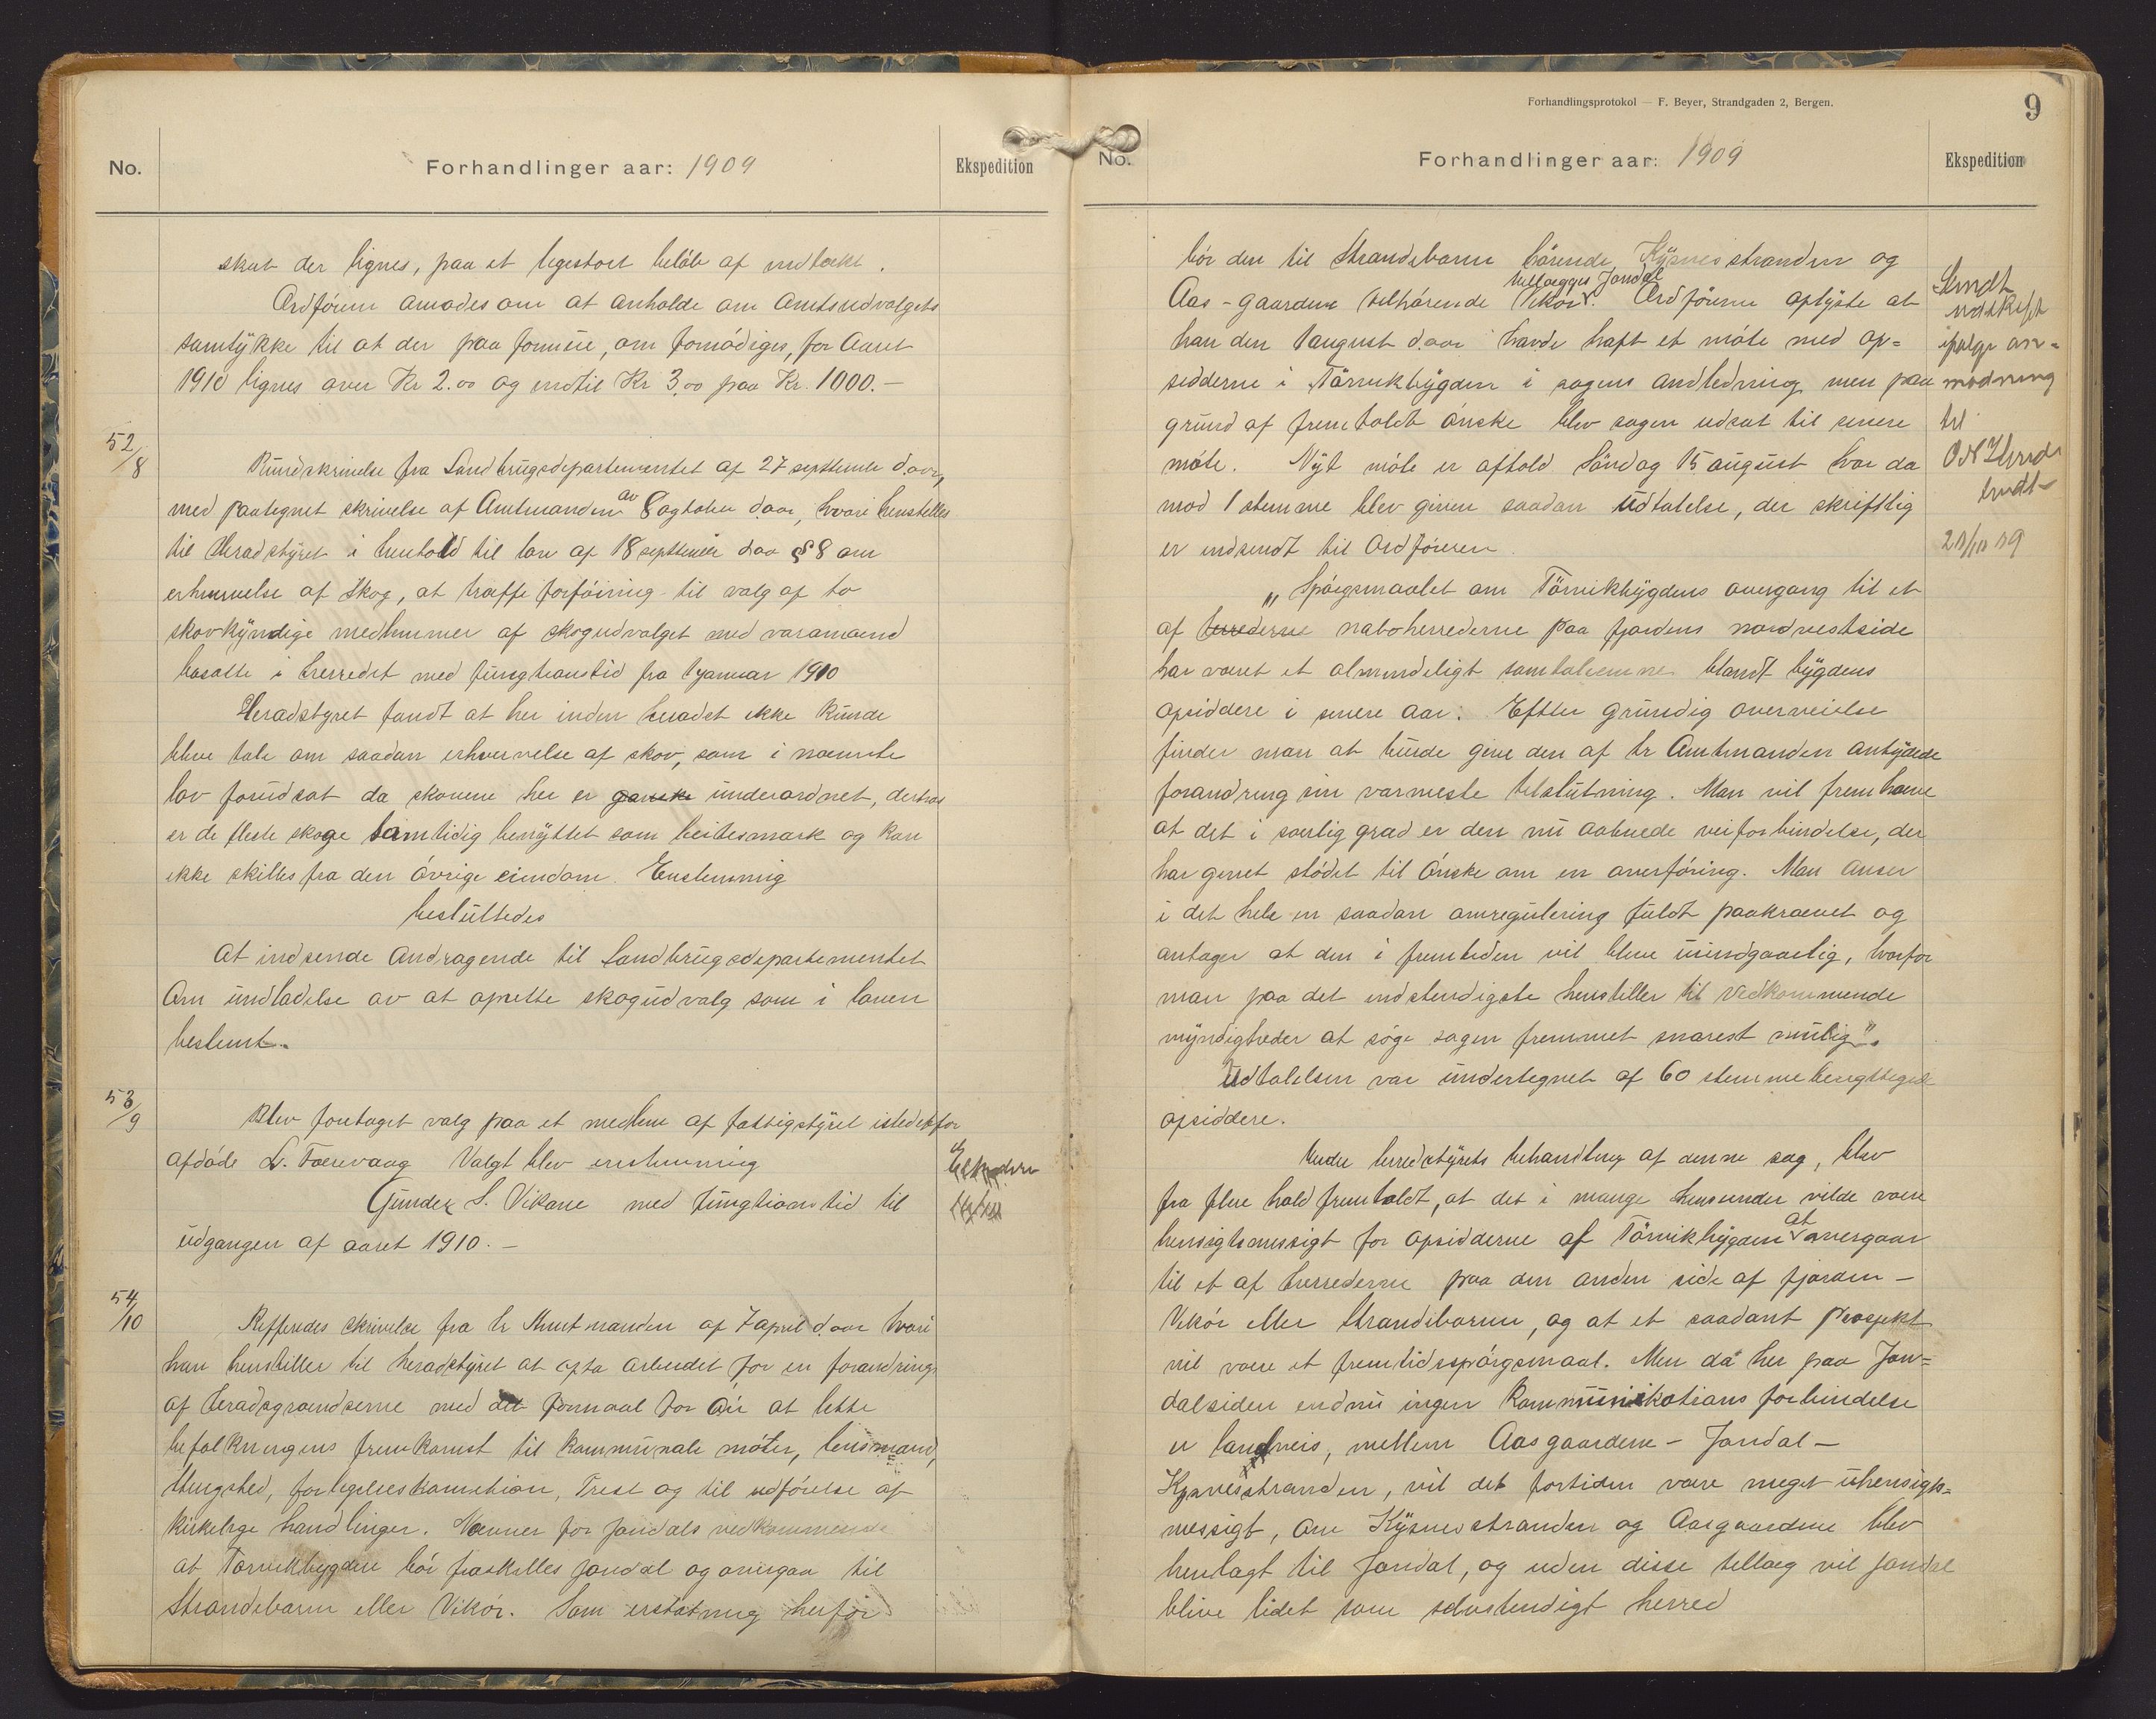 No.
Forhandlinger aar: 1909
Ekspedition
skat der lignes, paa et ligestort beløb af indtækt.
Ordføren anmodes om at anholde om Amtsudvalgets
samtykke til at der paa formue, om fornødiges, for Aaret
1910 lignes over Kr 2.00 og indtil Kr 3.00 paa Kr. 1000.—
52/8
Rundskrivelse fra Landbrugsdepartementet af 27 septbember d.aar,
med paategnet skrivelse af Amtmanden av 8 ogtober d.aar, hvori henstilles
til Heradstyret i henhold til lov af 18 september d.aa § 8 om
erhvervelse af Skog, at træffe forføining til valg af to
skovkyndige medlemmer af skogudvalget med varamænd
bosatte i herredet med fungtionstid fra 1 januar 1910
Heradstyret fandt at her inden heradet ikke kunde
blive tale om saadan erhvervelse af skov, som i nævnte
lov forudsat da skovene her er ganske underordnet, desuden
er de fleste skoge samtidig benyttet som beitesmark og kan
ikke skilles fra den øvrige eiendom. Enstemmig
besluttedes
At indsende Andragende til Landbrugsdepartementet
Om undladelse av at oprette skogudvalg som i loven
bestemt.
53/9
Blev foretaget valg paa et medlem af fattigstyret istedetfor
afdøde L. Torevang Valgt blev enstemmig
Gunder S. Vikane med fungtionstid til
udgangen af aaret 1910.—
54/10
Refferedes skrivelse fra hr Amtmanden af 7 april d.aar hvori
han henstiller til heradstyret at opta arbeidet for en forandring
af heradsgrændserne med det formaal for Øie at lette
befolkningens fremkomst til kommunale møter, lensmand,
thingsted, forligelseskomistion, Prest og til udførelse af
kirkelige handlinger. Nævner for Jondals vedkommende
at Tørvikbygden bør fraskilles Jondal og overgaa til
Strandebarm eller Vikør. Som erstatning herfor
Forhandlingsprotokol — F. Beyer, Strandgaden 2, Bergen.
9
No.
Forhandlinger aar: 1909
Ekspedition
bør den til Strandebarm hørende Kysnesstranden og
Aas-gaardene tilhørende Vikør tillægges Jondal. Ordføreren oplyste at
han den 1 august d.aar havde haft et møte med op=
sidderne i Tørvikbygden i sagens andledning men paa
grund af fremholdt ønske blev sagen udsat til senere
møte. Nyt møte er afhold Søndag 15 august hvor da
mod 1 stemme blev given saadan Udtalelse, der skriftlig
er indsendt til Ordføreren.
„Spørgsmaalet om Tørvikbygdens overgang til et
af herrederne naboherrederne paa fjordens nordvestside
har været et almindeligt samtaleemne blandt bygdens
opsiddere i senere aar. Efter grundig overveielse
finder man at burde give den af hr Amtmanden antydede
forandring sin varmeste tilslutning. Man vil fremhæve
at det i særlig grad er den nu aabnede veiforbindelse, der
har givet stødet til Ønske om en overføring. Man anser
i det hele en saadan omregulering fuldt paakrævet og
antager at den i fremtiden vil blive uundgaaelig, hvorfor
man paa det indstendigste henstiller til Vedkommende
myndigheder at søge sagen fremmet snarest mulig".
Udtalelsen var undertegnet af 60 stemmeberegttigede
opsiddere.
Under herredstyrets behandling af denne sag, blev
fra flere hold fremholdt, at det i mange hensender vilde være
hensigtsmessigt for opsidderne af Tørvikbygden at overgaar
til et af herrederne paa den anden side af fjorden —
Vikør eller Strandebarm, og at et saadant Prospekt
vil være et fremtidsspørgsmaal. Men da her paa Jon=
dalsiden endnu ingen Kommunikations forbindelse
er landveis, mellem Aasgaardene — Jondal —
Kysnesstranden, vil det fortiden være meget uhensigts=
messigt, Om Kysnesstranden og Aasgaardene blev
henlagt til Jondal, og uden disse tillæg vil Jondal
blive lidet som selvstendigt herred
Sendt
udskrift
ifølge an=
modning
til
sendt